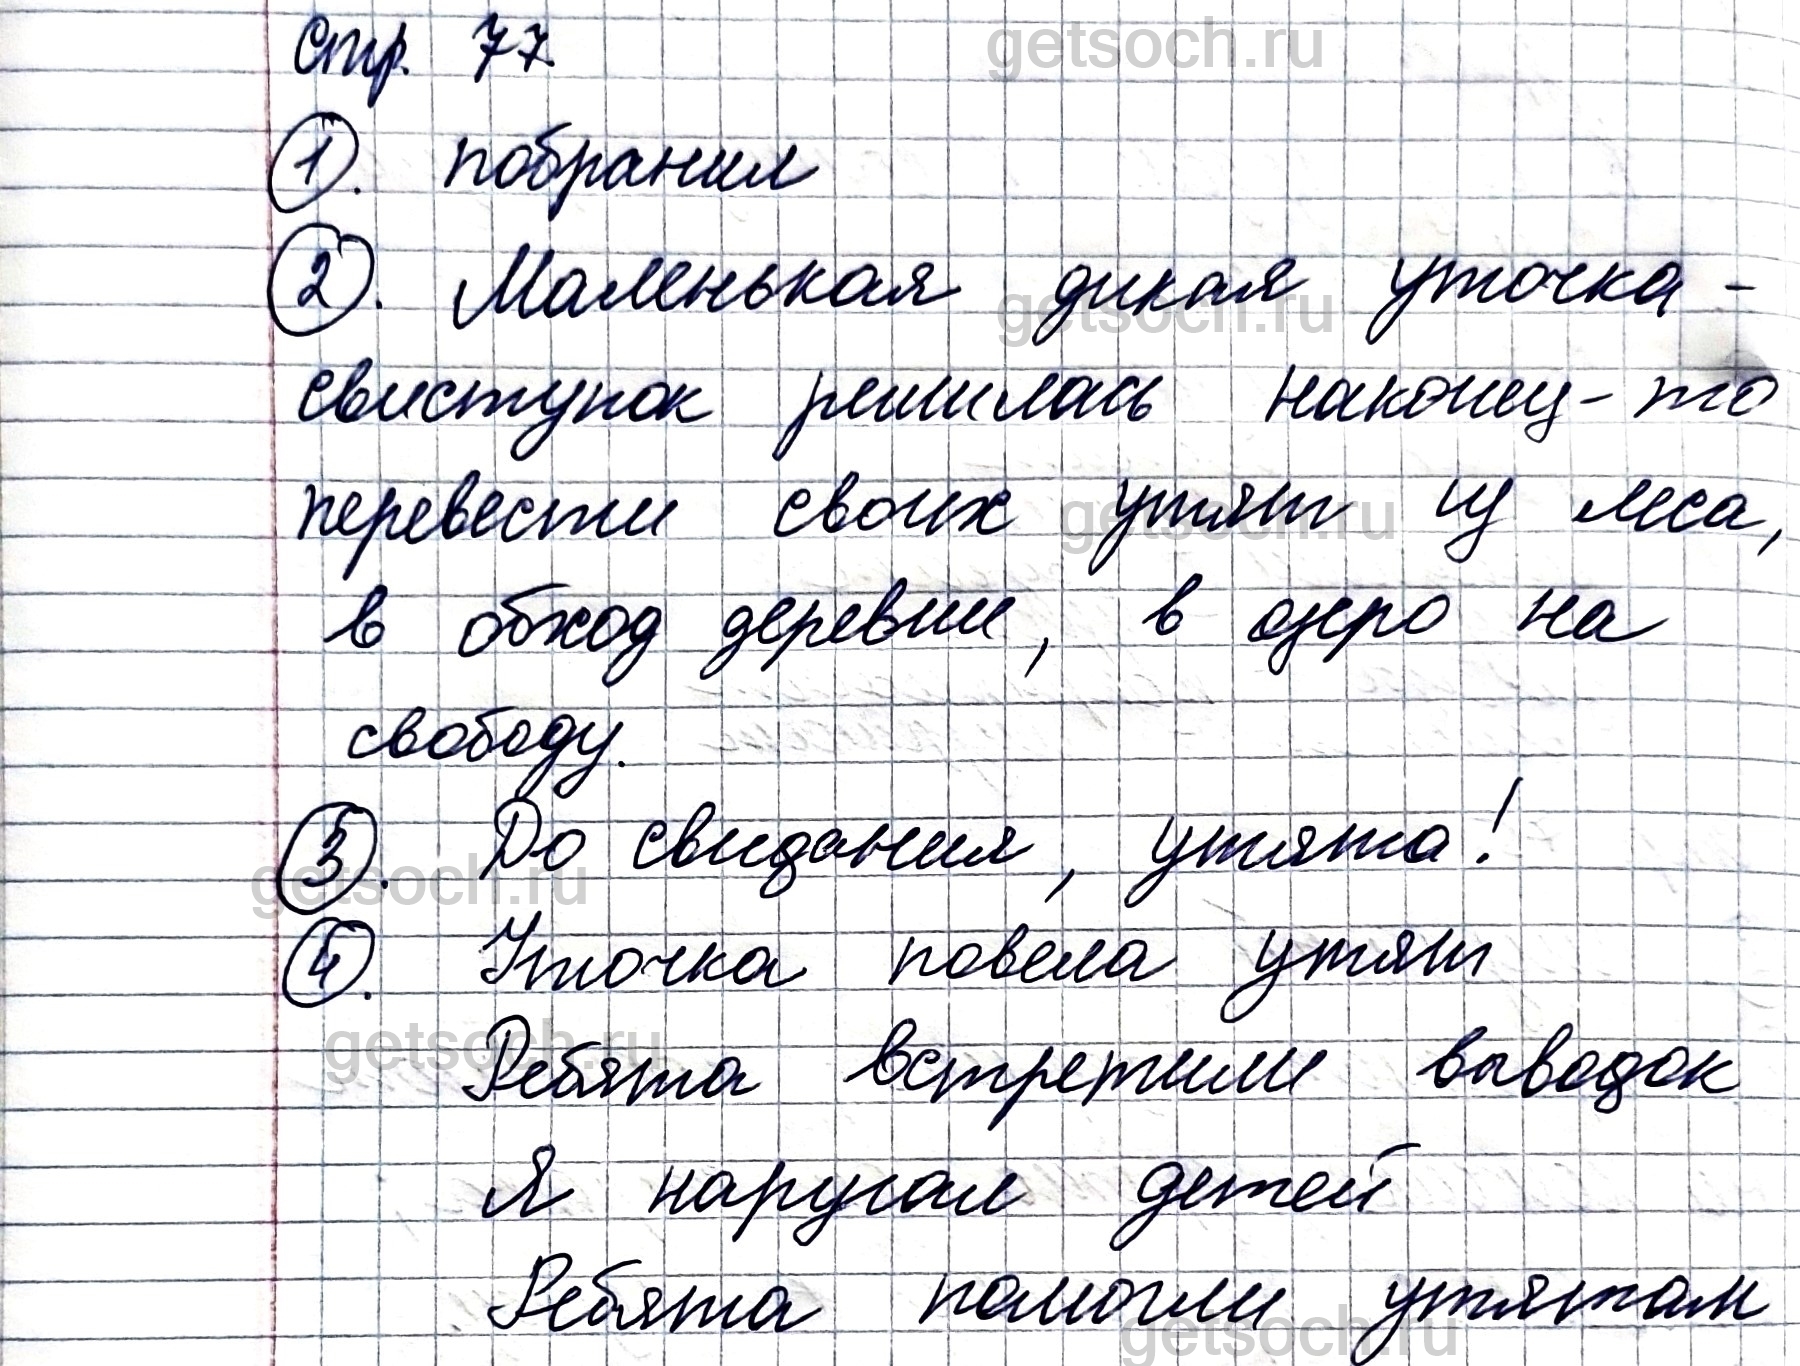 стр. 77
getsoch.ru
1. побранил
2. Маленькая дикая уточка-
getsoch.ru
свистунок решилась наконец-то
перевести своих утят из леса,
getsoch.ru
в обход деревни, в озеро на
свободу.
3. До свидания, утята!
getsoch.ru
4. Уточка повела утят
getsoch.ru
Ребята встретили выводок
Я наругал детей
Ребята помогли утятам
getsoch.ru